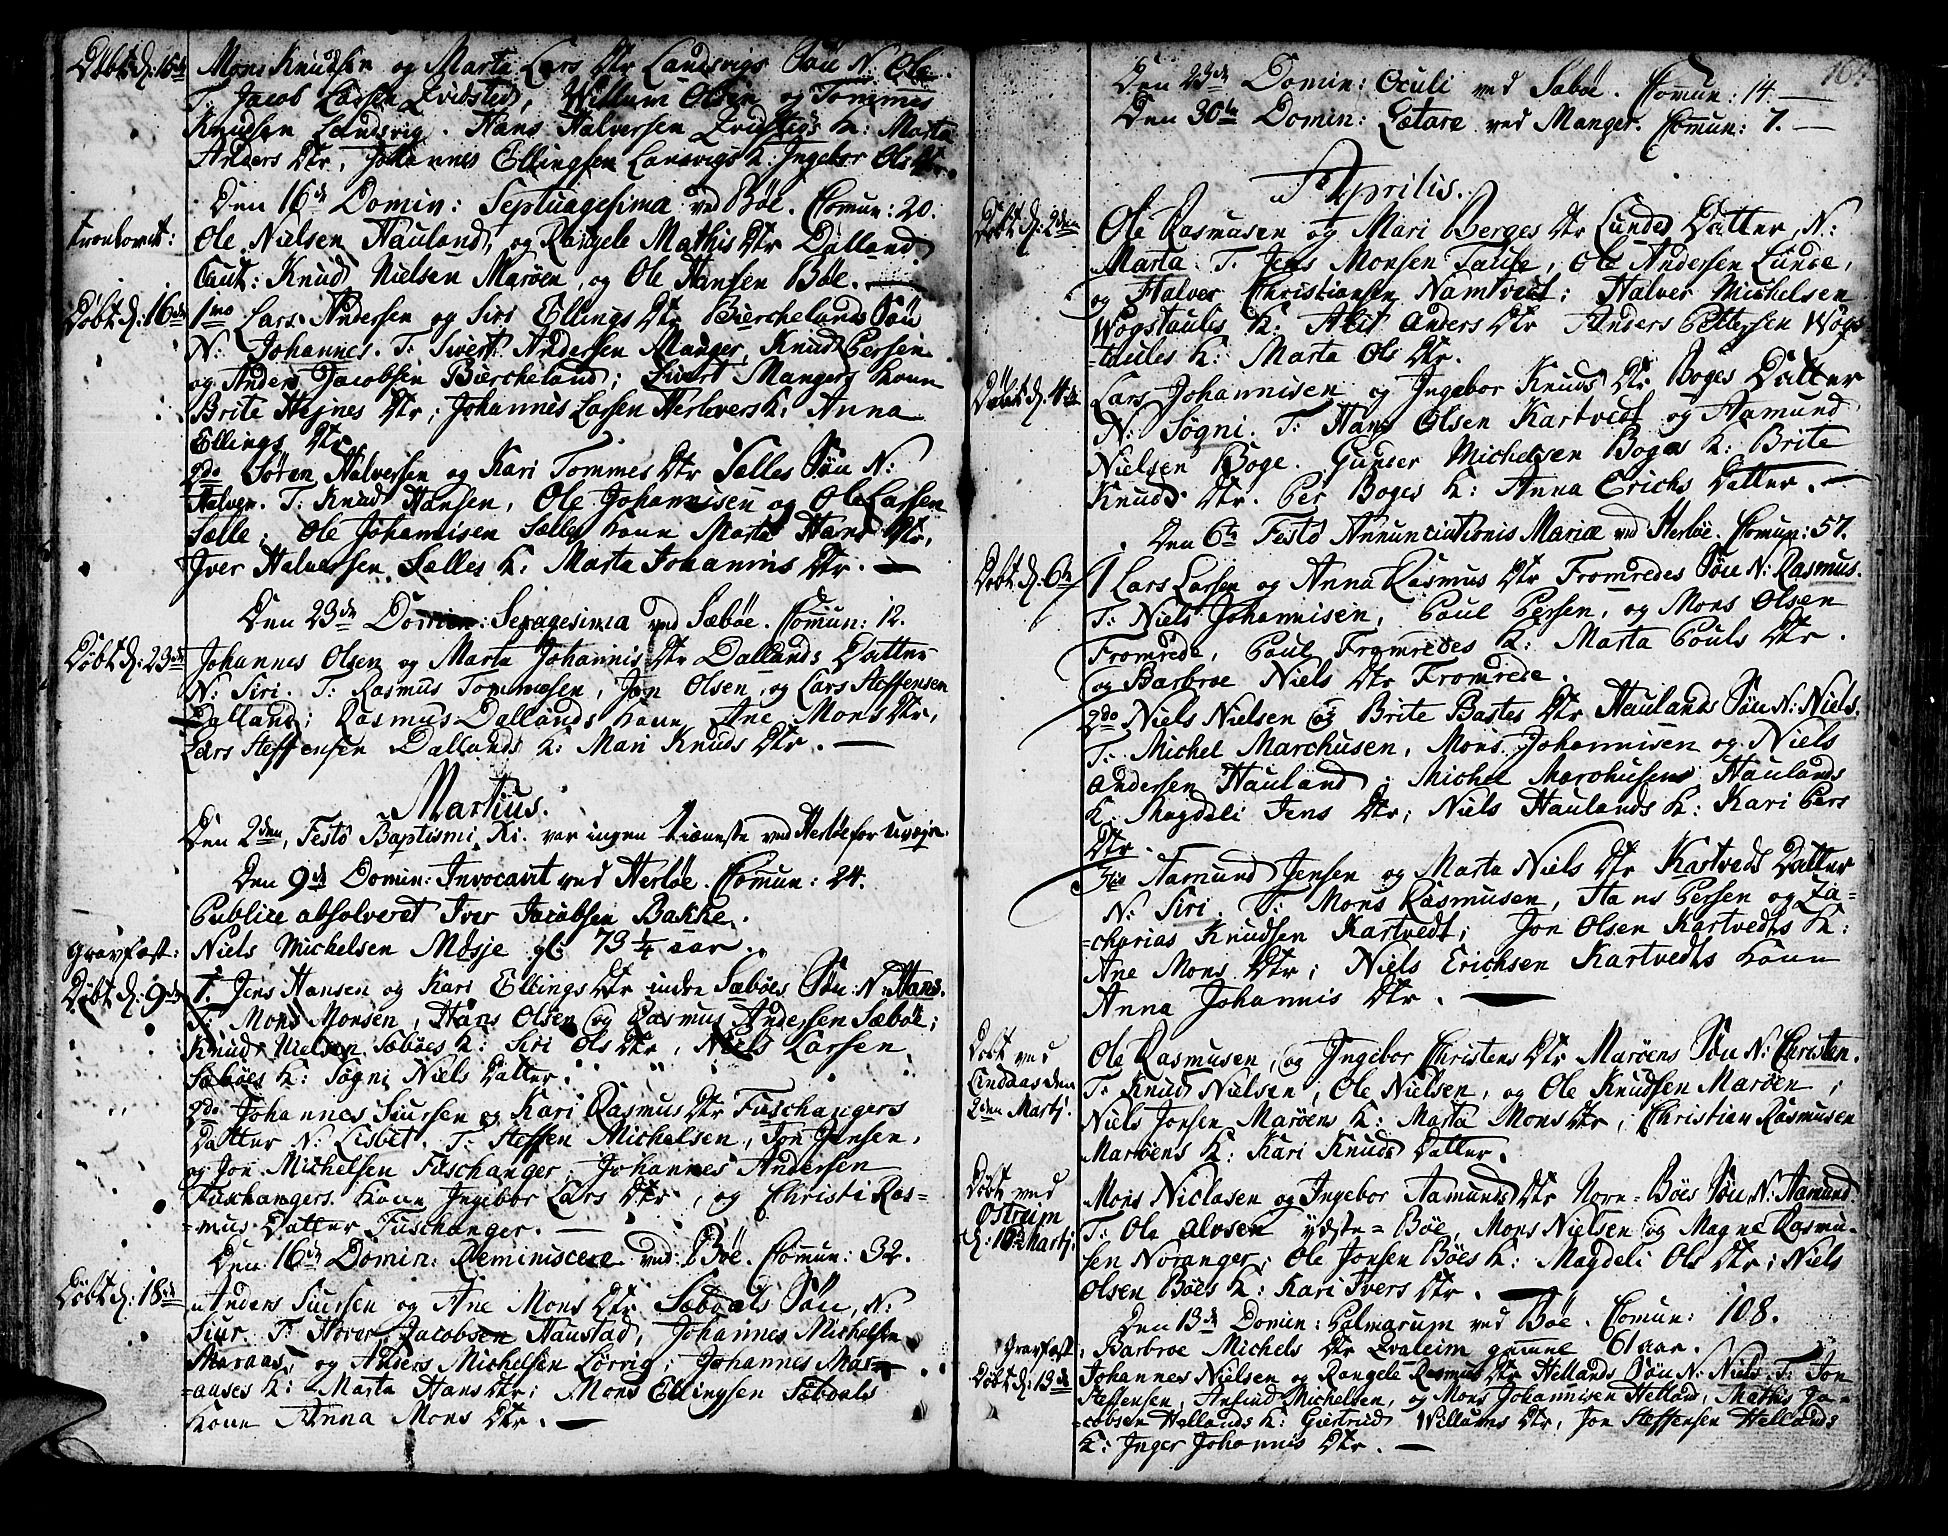 Døbt d: 15de Mons Knudsen og Marta Lars Dtr Landsvigs Søn N. Ole.
T: Jacob Larsen Qvidsted, Willum Olsen og Tommes
Knudsen Landsvig. Hans Halversen Qvidstegs K: Marta
Anders Dtr, Johannes Ellingsen Lansvigs K: Ingebor Ols Dtr.
Den 16de Domin: Septuagesima ved Bøe. Comun: 20.
trenlovet: Ole Nielsen Hauland, og Rangele Mathis Dtr Dalland.
Caut: Knud Nielsen Marøen, og Ole Hansen Bøe.
Døbt d: 16de 1mo Lars Andersen og Siri Ellings Dtr Biercheland Søn
N: Johannes. T: Sivert Andersen Manger, Knud Persen
og Anders Jacobsen Biercheland; Sivert Mangers Kone
Brite Hejnes Dtr; Johannes Larsen Herlovers K: Anna
Ellings Dtr
2do Søren Halversen og Kari Tommes Dtr Sælles Søn N:
Halver. T: Knud Hansen, Ole Johannisen og Ole Larsen
Sælle; Ole Johannisen Sælles Kone Marta Hans Dtr,
Iver Halversen Sælles K: Marta Johannis Dtr.
Den 23de Domin: Sexagesima ved Sæbøe. Comun: 12.
Døbt d: 23de Johannes Olsen og Marta Johannis Dtr Dallands Datter
N: Siri. T: Rasmus Tommesen, Jon Olsen, og Lars Steffensen
Dalland; Rasmus Dallands Kone Ane Mons Dtr,
Lars Steffensen Dallands K: Mari Knuds Dtr.
Martius.
Den 2den, Festo Baptismi Xi. var ingen tieneste ved Herløe for Uvejr.
Den 9de Domin: Invocavit ved Herløe. Comun: 24.
Publice absolveret Iver Jacobsen Bakke.
Gravfæst: Niels Michelsen Møsje gl: 73 1/4 aar.
Døbt d: 9de 1. Jens Hansen og Kari Ellings Dtr indre Sæbøes Søn N: Hans.
T: Mons Monsen, Hans Olsen og Rasmus Andersen Sæbøe;
Knud Nielsen Sæbøes K: Siri Ols Dtr, Niels Larsen
Sæbøes K: Søgni Niels Datter.
2do Johannes Siursen og Kari Rasmus Dtr Fuschangers
Datter N: Lisbet. T: Steffen Michelsen, Jon Jensen,
og Jon Michelsen Fuschanger; Johannes Andersen
Fuschangers Kone Ingebor Lars Dtr, og Christi Ras-
-mus Datter Fuschanger.
Den 16de Domin: Reminiscere ved Bøe. Comun: 32.
Døbt d: 18de Anders Siursen og Ane Mons Dtr Sæbdals Søn, N:
Siur. T: Haver Jacobsen Haustad, Johannes Michelsen
Maraas, og Anders Michelsen Lørvig; Johannes Mar-
-aases K: Marta Hans Dtr; Mons Ellingsen Sæbdals
Kone Anna Mons Dtr.
164.
Den 23de Domin: Oculi ved Sæbøe. Comun: 14
Den 30te Domin: Lætare ved Manger. Comun: 7.
Aprilis.
Døbt d: 2den Ole Rasmusen og Mari Berges Dtr Lundes Datter, N:
Marta. T: Jens Monsen Taule, Ole Andersen Lunde,
og Halver Christiansen Namtvedt; Halver Michelsen
Wogstaules K: Alit Anders Dtr Anders Pettersen Wogs-
-taules K: Marta Ols Dtr.
Døbt d: 4de Lars Johannisen og Ingebor Knuds Dtr Boges Datter
N: Søgni. T: Hans Olsen Kartvedt og Aamund
Nielsen Boge. Gunder Michelsen Boges K: Brite
Knuds Dtr. Per Boges K: Anna Erichs Datter.
Den 6te Festo Annunciationis Mariæ ved Herløe. Comun: 57.
Døbt d: 6te 1 Lars Larsen og Anna Rasmus Dtr Fromredes Søn N: Rasmus.
T: Niels Johannisen, Poul Persen, og Mons Olsen
Fromrede, Poul Fromredes K: Marta Pouls Dtr.
og Barbroe Niels Dtr Fromrede.
2do Niels Nielsen og Brite Bastes Dtr Haulands Søn N: Niels.
T: Michel Marchusen, Mons Johannisen og Niels
Andersen Hauland; Michel Marchusens Haulands
K: Magdeli Jens Dtr; Niels Haulands K: Kari Pers
Dtr.
3tio Aamund Jensen og Marta Niels Dtr Kartveds Datter
N: Siri. T: Mons Rasmusen, Hans Persen og Za-
-charias Knudsen Kartvedt; Jon Olsen Kartvedts K:
Ane Mons Dtr; Niels Erichsen Kartvedts Kone
Anna Johannis Dtr.
Døbt ved Lindaas den 2den Martj. Ole Rasmusen, og Ingebor Christens Dtr Marøens Søn N: Christen.
T: Knud Nielsen, Ole Nielsen, og Ole Knudsen Marøen;
Niels Jensen Marøens K: Marta Mons Dtr, Christian Rasmusen
Marøens K: Kari Knuds Datter.
Døbt ved Ostreim d: 16de Martj. Mons Niclasen og Ingebor Aamunds Dtr Norn-Bøes Søn N: Aamund.
T: Ole Alvsen ydste-Bøe, Mons Nielsen og Magne Rasmu-
sen Noranger; Ole Jonsen Bøes K: Magdeli Ols Dtr; Niels
Olsen Bøes K: Kari Ivers Dtr.
Den 13de Domin: Palmarum ved Bøe. Comun: 108.
Gravfæst: Barbroe Michels Dtr Qvaleim gamme 61 aar.
Døbt d: 13de Johannes Nielsen og Rangele Rasmus Dtr Hellands Søn N: Niels. T: Jon
Steffensen, Anfind Michelsen, og Mons Johannisen Helland, Mathis Ja-
-cobsen Hellands K: Giertrud Willums Dtr, Jon Steffensen Hellands
K: Inger Johannis Dtr.